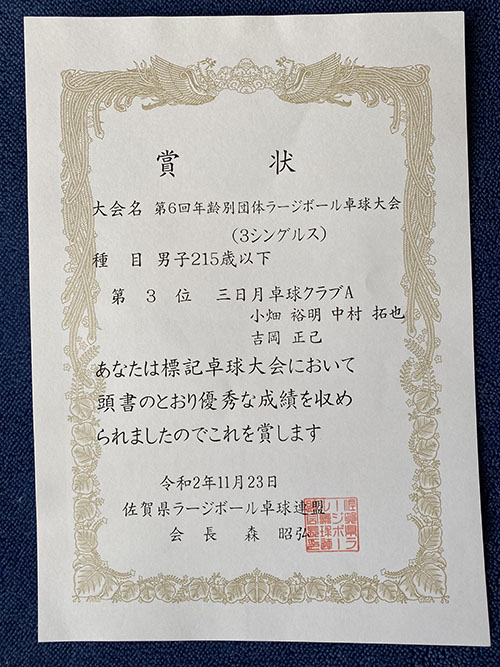 賞 状
大会名 第6回年齢別団体ラージボール卓球大会
(3シングルス)
種 目 男子215歳以下
第 3 位 三日月卓球クラブA
小畑 裕明 中村 拓也
吉岡 正己
あなたは標記卓球大会において
頭書のとおり優秀な成績を収め
られましたのでこれを賞します
令和2年11月23日
佐賀県ラージボール卓球連盟
会 長 森 昭弘